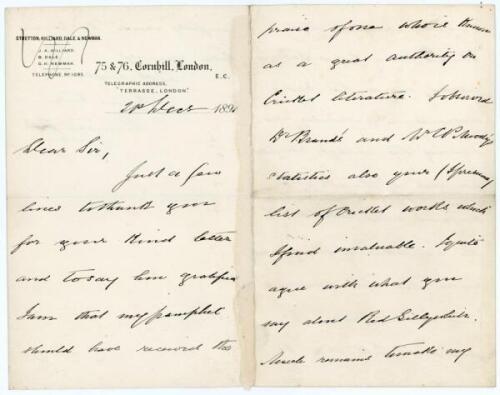 STRETTON, HILLIARD, DALE & NEWMAN.
J. A. HILLIARD.
B. DALE.
G. H. NEWMAN.
TELEPHONE Nº 1085.
75 & 76, Cornhill, London,
E.C.
TELEGRAPHIC ADDRESS,
"TERRASSE, LONDON"
Decr 189
Dear Sir,
Just a few
lines to thank you
for your kind letter
and to say how gratified
I am that my pamphlet
should have received the
praise of one who is known
as a great authority on
Cricket literature.
and Mr
statistics also your
list of Cricket works which
I find invaluable. I quite
agree with what you
say about Red Lillywhite.
remains to make my